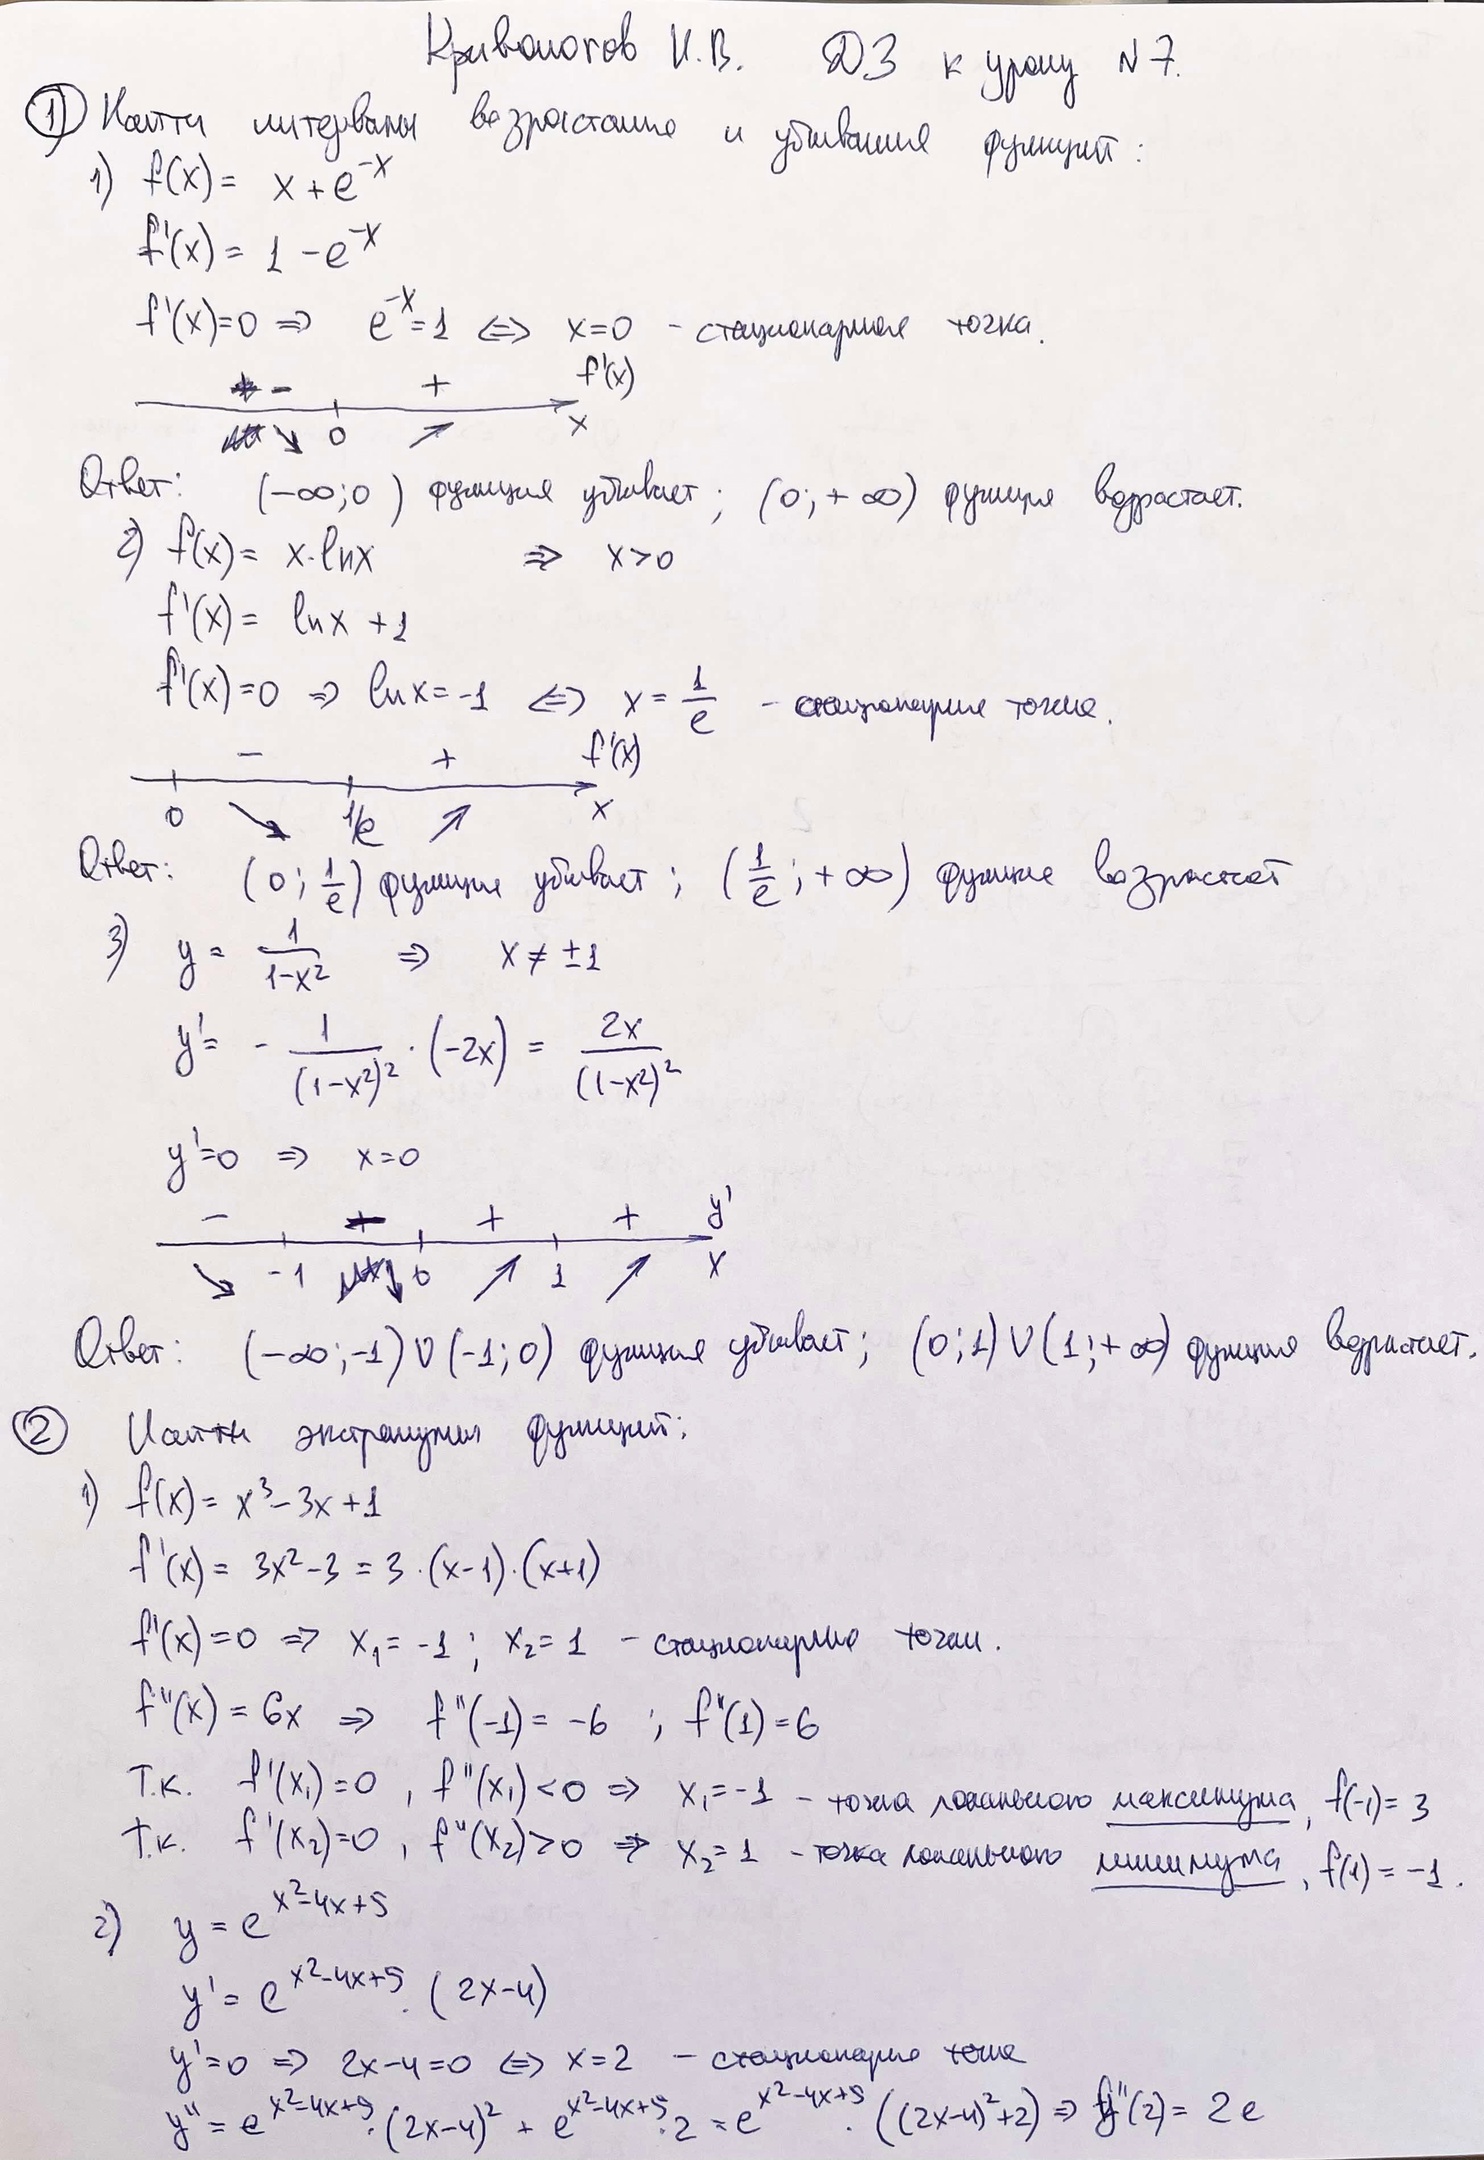 Кривоногов И.В. ДЗ к уроку N7.
① Найти интервалы возрастания и убывания функций:
1) f(x) = x + e^{-x}
f'(x) = 1 - e^{-x}
f'(x)=0 ⇒ e^{-x}=1 ⇔ x=0 - стационарная точка.
- + f'(x)
↘ 0 ↗ x
Ответ: (-∞; 0) функция убывает; (0; +∞) функция возрастает.
2) f(x) = x·lnx ⇒ x>0
f'(x) = lnx +1
f'(x)=0 ⇒ lnx = -1 ⇔ x = 1/e - стационарная точка.
- + f'(x)
0 ↘ 1/e ↗ x
Ответ: (0; 1/e) функция убывает; (1/e; +∞) функция возрастает
3) y = 1/(1-x²) ⇒ x ≠ ±1
y' = - 1/(1-x²)² · (-2x) = 2x/(1-x²)²
y'=0 ⇒ x=0
- - + + y'
↘ -1 ↘ 0 ↗ 1 ↗ x
Ответ: (-∞; -1) ∪ (-1; 0) функция убывает; (0; 1) ∪ (1; +∞) функция возрастает.
② Найти экстремумы функций:
1) f(x) = x³ - 3x + 1
f'(x) = 3x² - 3 = 3·(x-1)·(x+1)
f'(x) = 0 ⇒ x₁ = -1; x₂ = 1 - стационарные точки.
f''(x) = 6x ⇒ f''(-1) = -6 ; f''(1) = 6
Т.к. f'(x₁)=0, f''(x₁)<0 ⇒ x₁=-1 - точка локального максимума, f(-1) = 3
Т.к. f'(x₂)=0, f''(x₂)>0 ⇒ x₂=1 - точка локального минимума, f(1) = -1.
2) y = e^{x²-4x+5}
y' = e^{x²-4x+5}·(2x-4)
y'=0 ⇒ 2x-4=0 ⇔ x=2 - стационарная точка
y'' = e^{x²-4x+5}·(2x-4)² + e^{x²-4x+5}·2 = e^{x²-4x+5}·((2x-4)²+2) ⇒ y''(2) = 2e